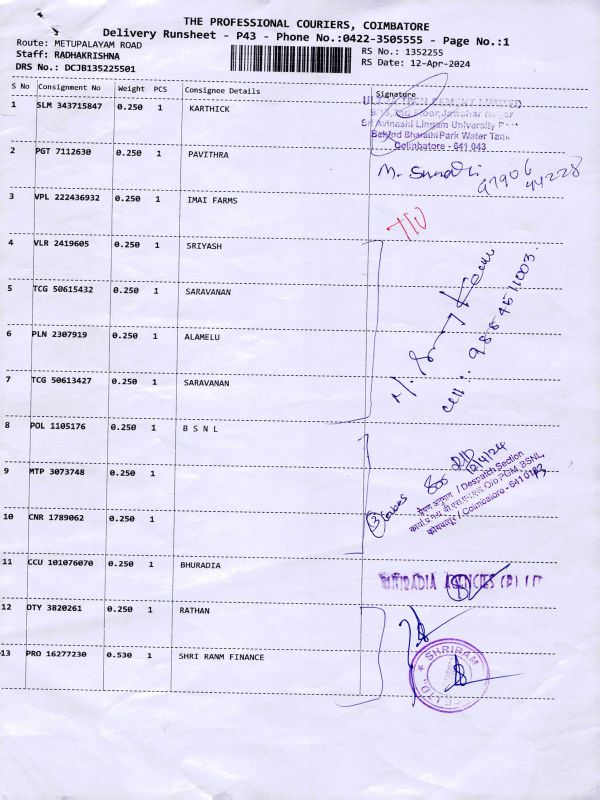 THE PROFESSIONAL COURIERS, COIMBATORE
Delivery Runsheet - P43 - Phone No.:0422-3505555 - Page No.:1
Route: METUPALAYAM ROAD
Staff: RADHAKRISHNA
DRS No.: DCJB135225501
RS No.: 1352255
RS Date: 12-Apr-2024
S No Consignment No Weight PCS Consignee Details Signature
1 SLM 343715847 0.250 1 KARTHICK
Floor, Jawahar Nagar
Sri Avinashi Lingam University Post
Behind Bharathi Park Water Tank
Coimbatore - 641 043
2 PGT 7112630 0.250 1 PAVITHRA
97906 44228
3 VPL 222436932 0.250 1 IMAI FARMS
4 VLR 2419605 0.250 1 SRIYASH
5 TCG 50615432 0.250 1 SARAVANAN
6 PLN 2307919 0.250 1 ALAMELU
7 TCG 50613427 0.250 1 SARAVANAN
cell: 9884511003
8 POL 1105176 0.250 1 B S N L
9 MTP 3073748 0.250 1
10 CNR 1789062 0.250 1
3
12/4/24
प्रेषण अनुभाग / Despatch Section
O/o PGM, BSNL,
कोयंबत्तूर / Coimbatore - 641 0
11 CCU 101076070 0.250 1 BHURADIA
BHURADIA AGENCIES (P) LT
12 OTY 3820261 0.250 1 RATHAN
13 PRO 16277230 0.530 1 SHRI RANM FINANCE
SHRIRAM
LTD.